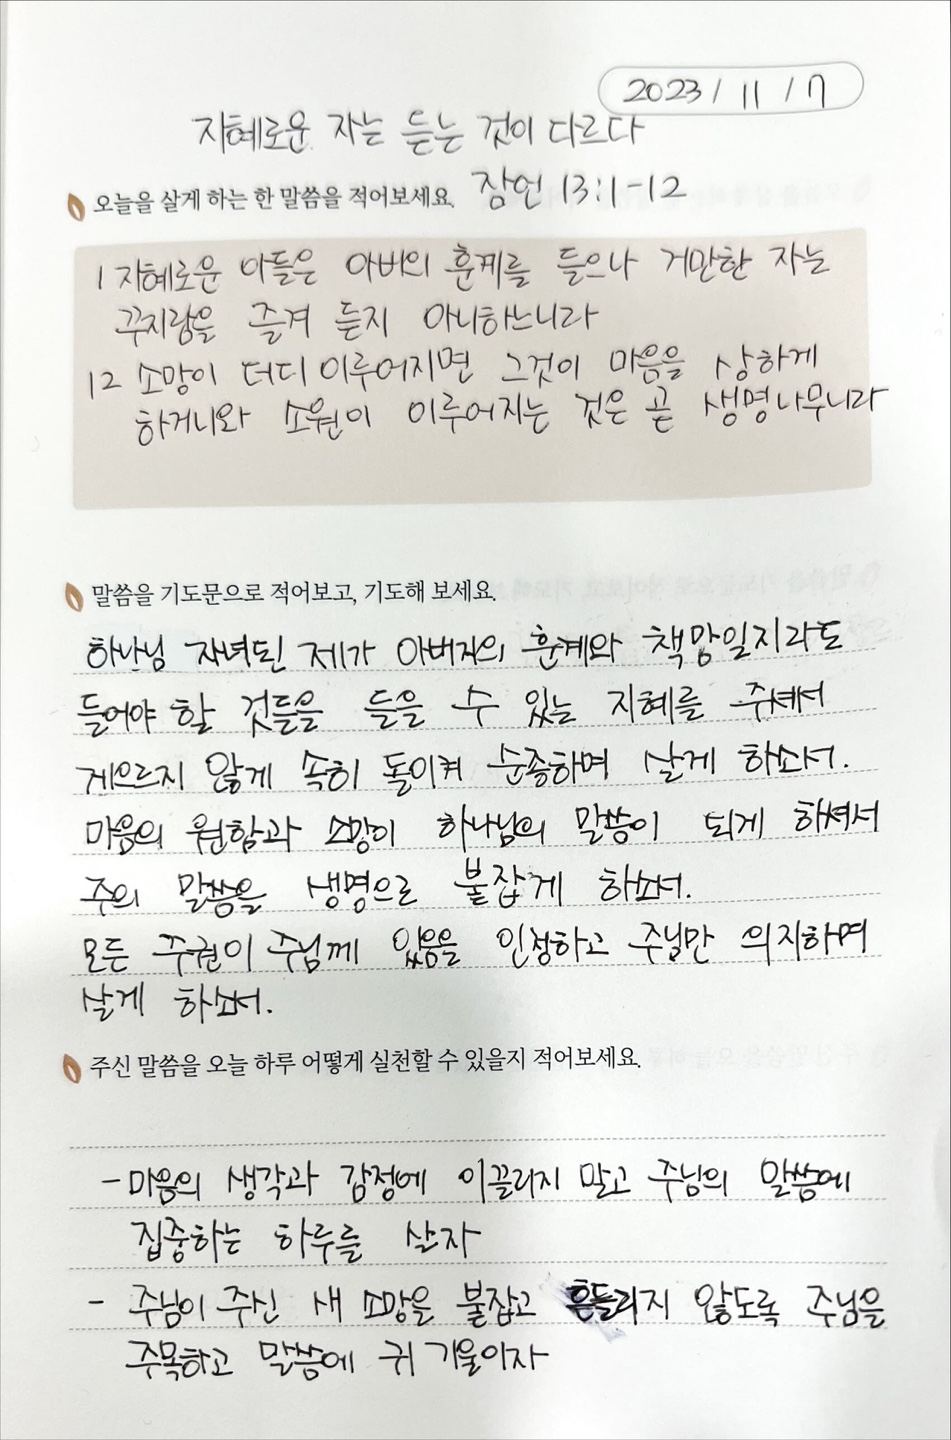 2023 / 11 / 7
지혜로운 자는 듣는 것이 다르다
오늘을 살게 하는 한 말씀을 적어보세요. 잠언 13:1-12
1 지혜로운 아들은 아비의 훈계를 들으나 거만한 자는
꾸지람을 즐겨 듣지 아니하느니라
12 소망이 더디 이루어지면 그것이 마음을 상하게
하거니와 소원이 이루어지는 것은 곧 생명나무니라
말씀을 기도문으로 적어보고, 기도해 보세요.
하나님 자녀된 제가 아버지의 훈계와 책망일지라도
들어야 할 것들을 들을 수 있는 지혜를 주셔서
게으르지 않게 속히 돌이켜 순종하며 살게 하소서.
마음의 원함과 소망이 하나님의 말씀이 되게 하셔서
주의 말씀을 생명으로 붙잡게 하소서.
모든 주권이 주님께 있음을 인정하고 주님만 의지하며
살게 하소서.
주신 말씀을 오늘 하루 어떻게 실천할 수 있을지 적어보세요.
- 마음의 생각과 감정에 이끌리지 말고 주님의 말씀에
집중하는 하루를 살자
- 주님이 주신 새 소망을 붙잡고 흔들리지 않도록 주님을
주목하고 말씀에 귀 기울이자